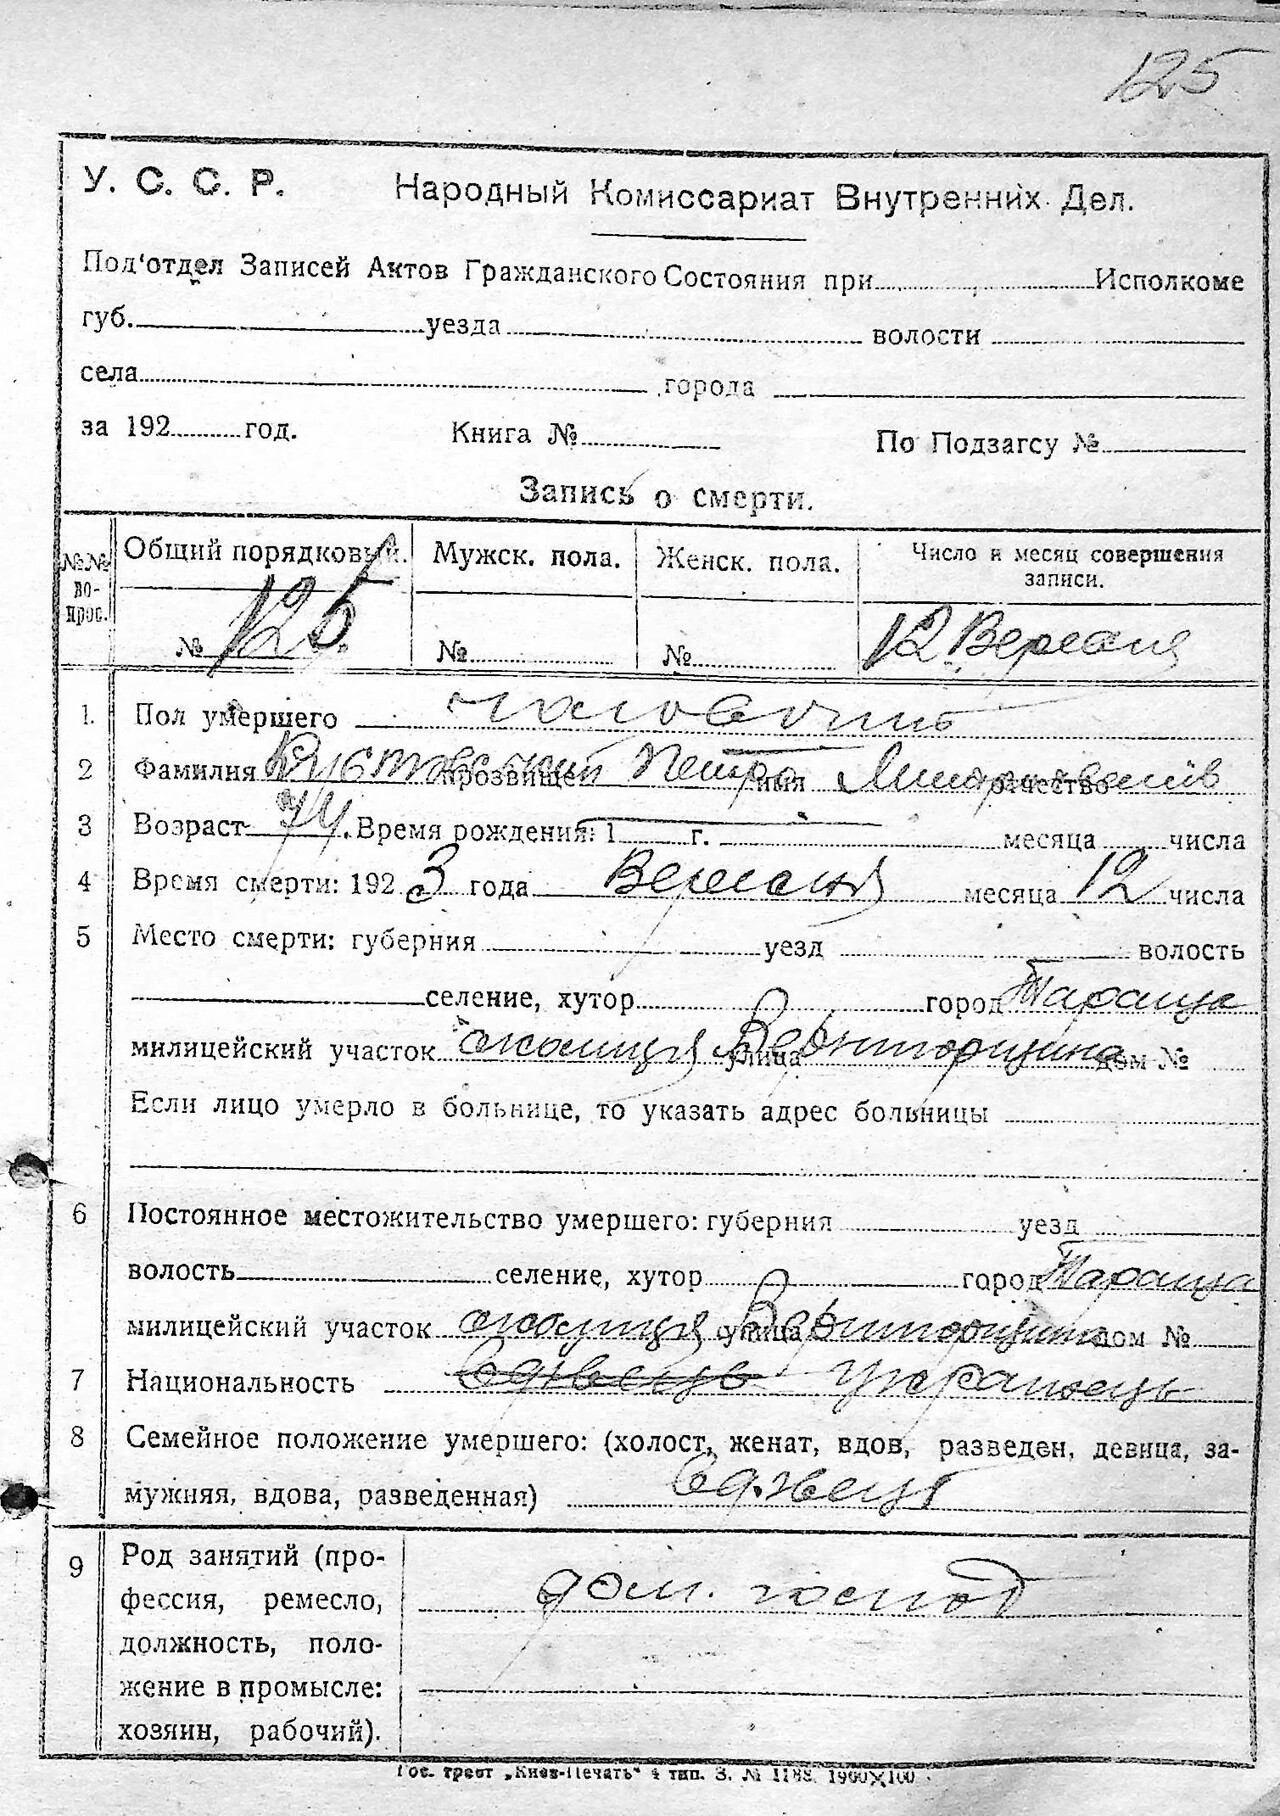 125
У. С. С. Р. Народный Комиссариат Внутренних Дел.
Под'отдел Записей Актов Гражданского Состояния при Исполкоме
губ. уезда волости
села города
за 192 год. Книга № По Подзагсу №
Запись о смерти.
№№ во-прос. Общий порядковый. Мужск. пола. Женск. пола. Число и месяц совершения записи.
№ 125 № № 12 Вересня
1. Пол умершего чоловічий
2 Фамилия прозвище имя Петро отчество
3 Возраст 74. Время рождения: 1 г. месяца числа
4 Время смерти: 1923 года Вересня месяца 12 числа
5 Место смерти: губерния уезд волость
селение, хутор город Тараща
милицейский участок околиця улица дом №
Если лицо умерло в больнице, то указать адрес больницы
6 Постоянное местожительство умершего: губерния уезд
волость селение, хутор город Тараща
милицейский участок околиця улица дом №
7 Национальность українець
8 Семейное положение умершего: (холост, женат, вдов, разведен, девица, за-
мужняя, вдова, разведенная)
9 Род занятий (про-
фессия, ремесло, дом. господ
должность, поло-
жение в промысле:
хозяин, рабочий).
Гос. трест „Киев-Печать“ 4 тип. З. № 1188. 1900✕100